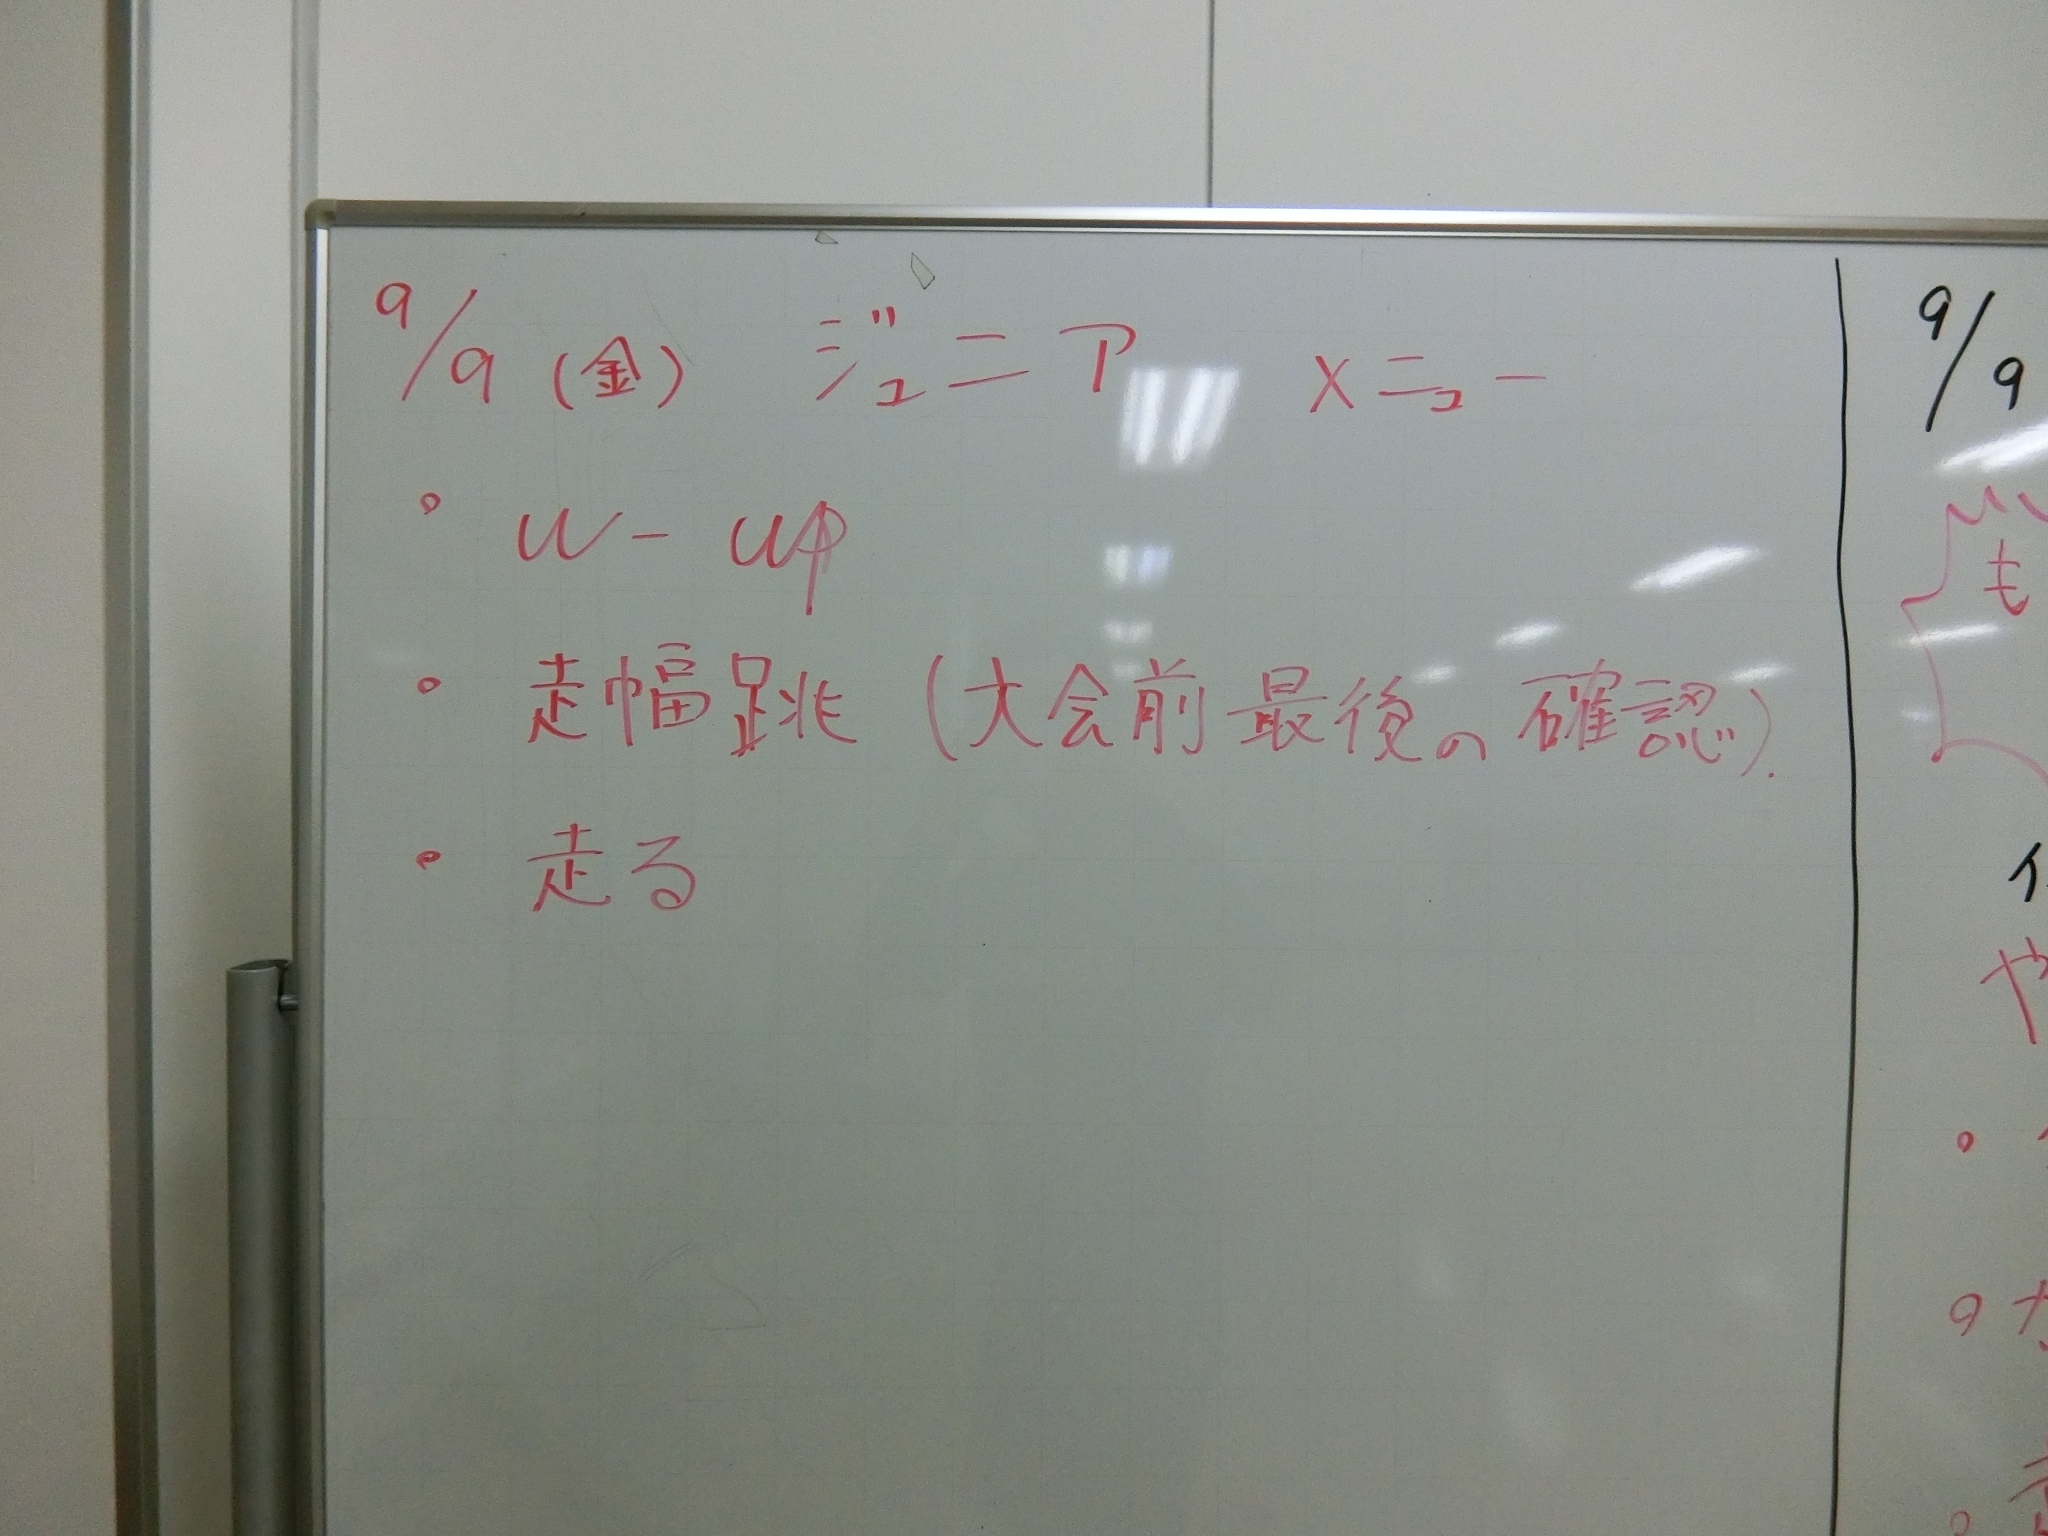 9/9(金) ジュニア メニュー
• W-up
• 走幅跳(大会前最後の確認).
• 走る
9/9
も
や